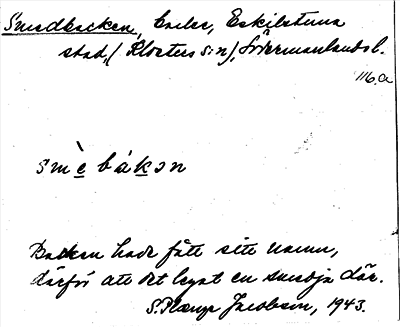 Smedbacken, backe, Eskilstuna
stad, (Klosters sn), Södermanlands l.
116.a
smè bákən
Backen hade fått sitt namn,
därför att det legat en smedja där.
S. Jacobson, 1943.